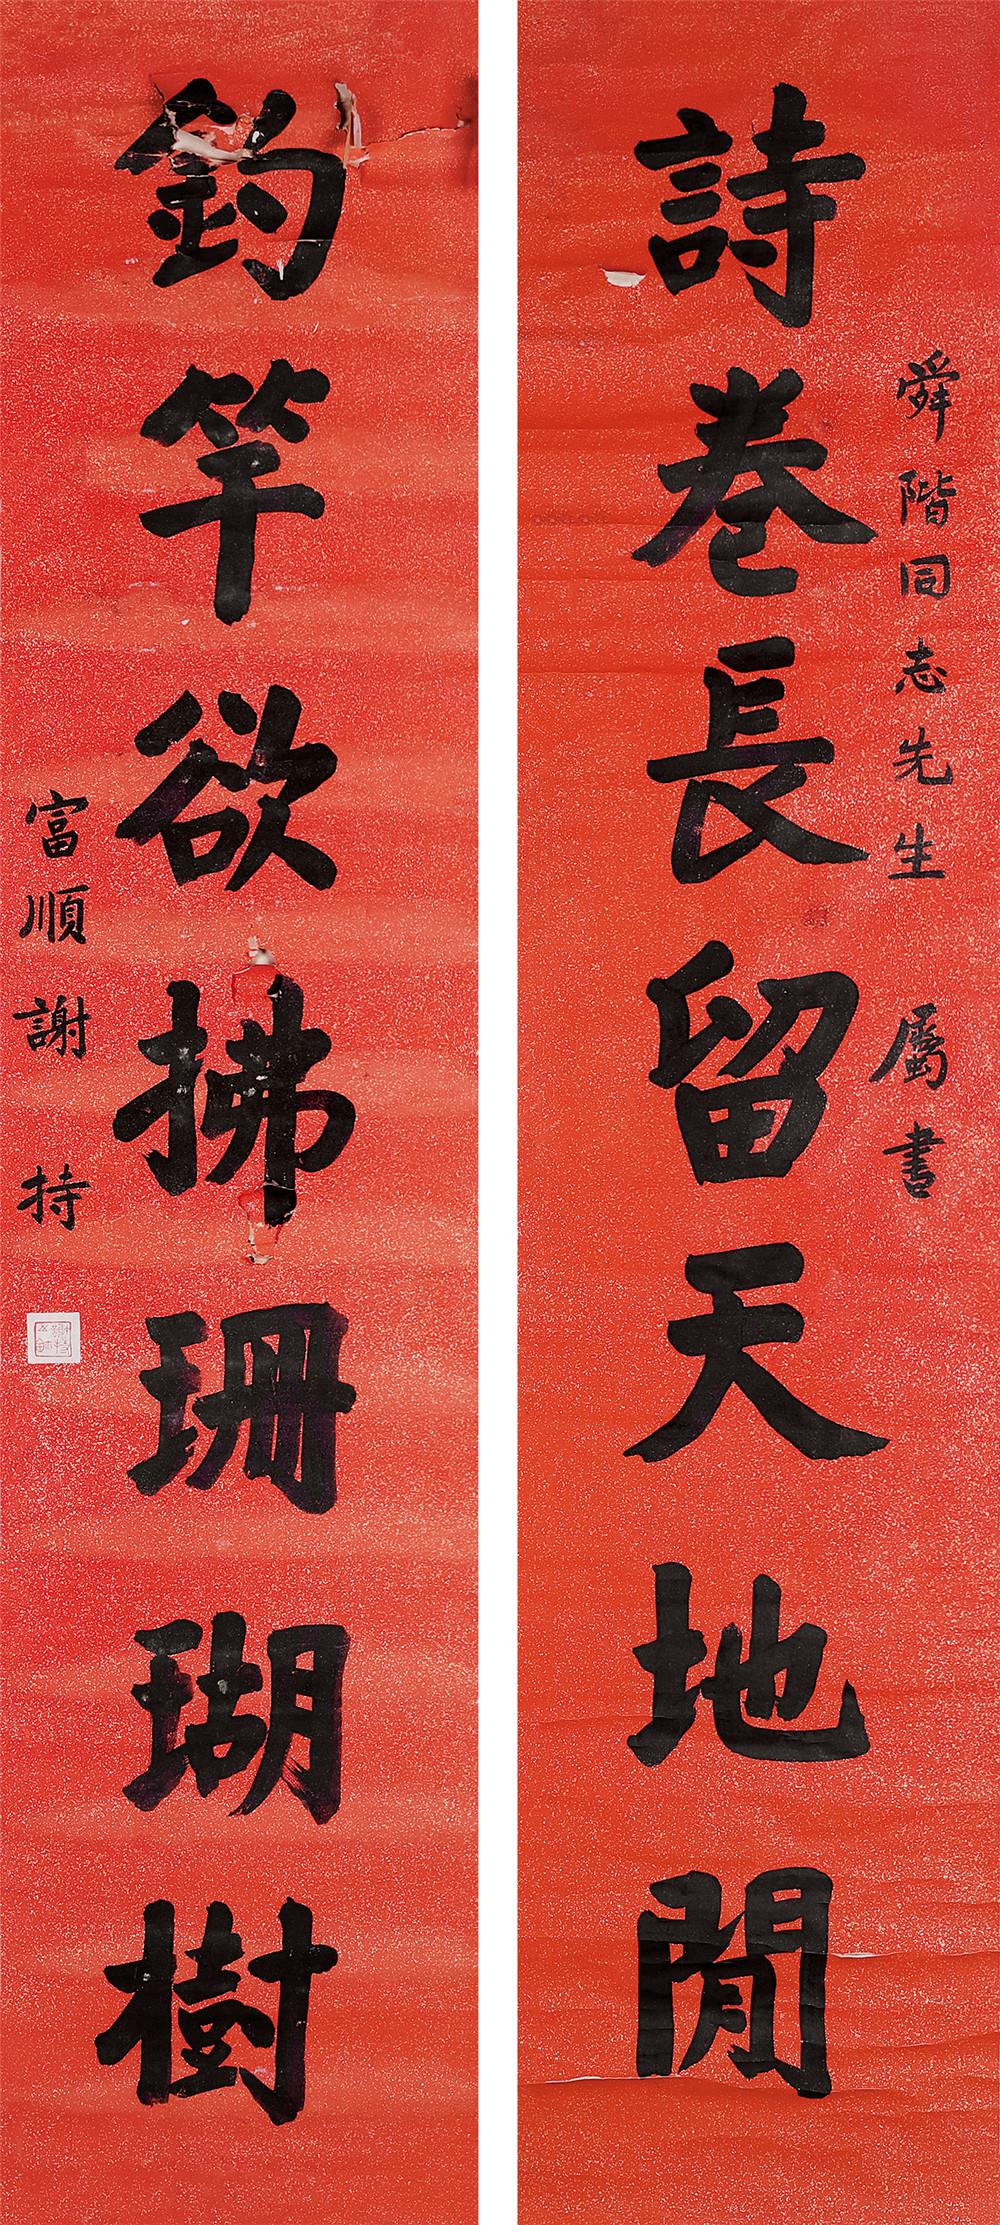 舜階同志先生 屬書
詩卷長留天地閒
釣竿欲拂珊瑚樹
富順謝持